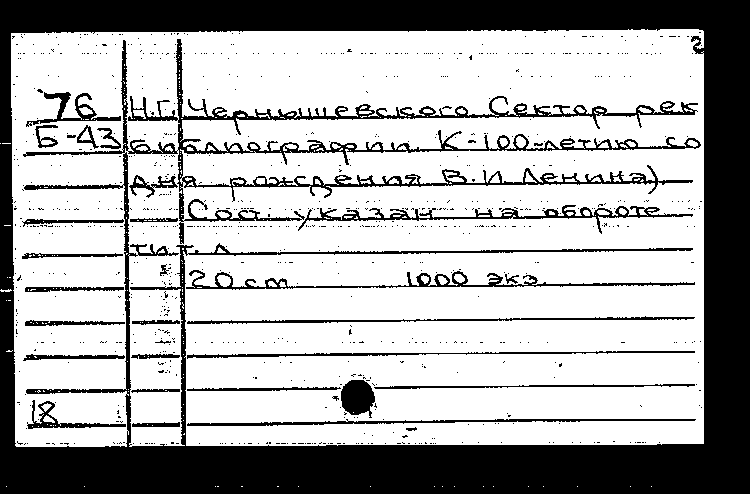 2
76 Н.Г. Чернышевского Сектор рек
Б-43 библиографии. К-100-летию со
дня рождения В.И Ленина).
Сос. указан на обороте
тит. л
20 cm 1000 экз.
18